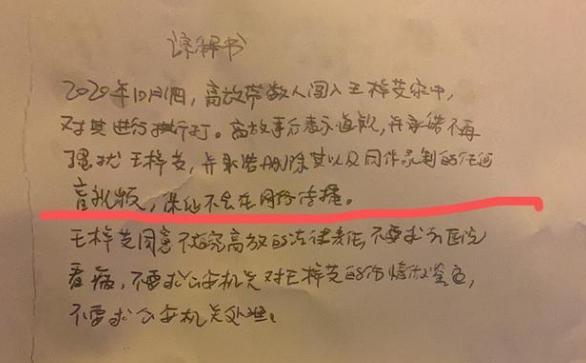 谅解书
2020年10月1日，高放带数人闯入王梓芠家中，
对其进行拳打。高放事后表示道歉，并承诺不再
骚扰王梓芠，并承诺删除其以及同伴录制的任何
音视频，保证不会在网络传播。
王梓芠同意不追究高放的法律责任，不要求去医院
看病，不要求公安机关对王梓芠的伤情做鉴定，
不要求公安机关处理。